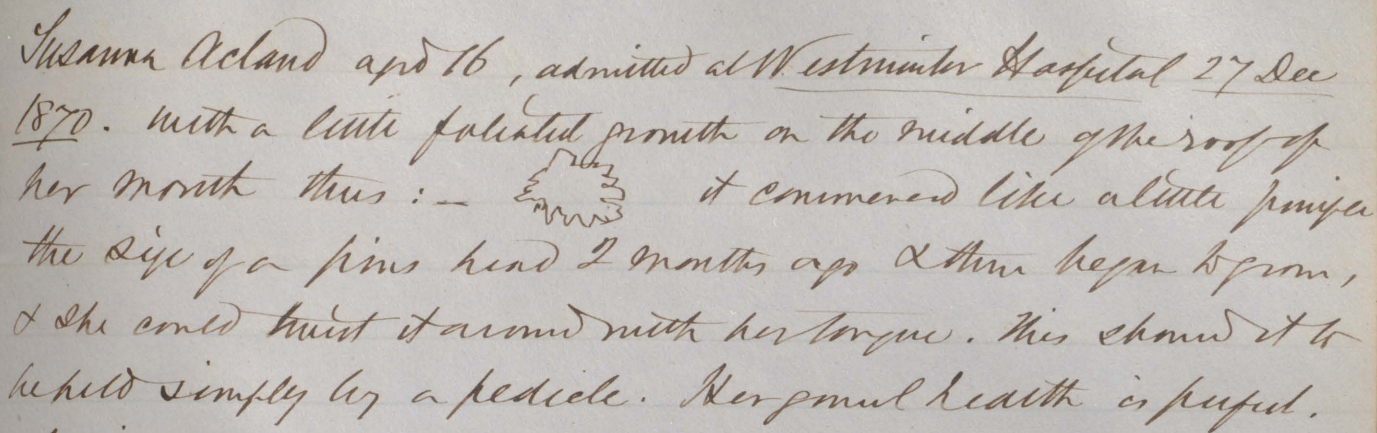 Susanna Acland aged 16, admitted at Westminster Hospital 27 Dec
1870. with a little foliated growth on the middle of the roof of
her mouth thus :— it commenced like a little pimple
the size of a pins head 2 months ago & then began to grow,
& she could twist it around with her tongue. This showed it to
be held simply by a pedicle. Her general health is perfect.